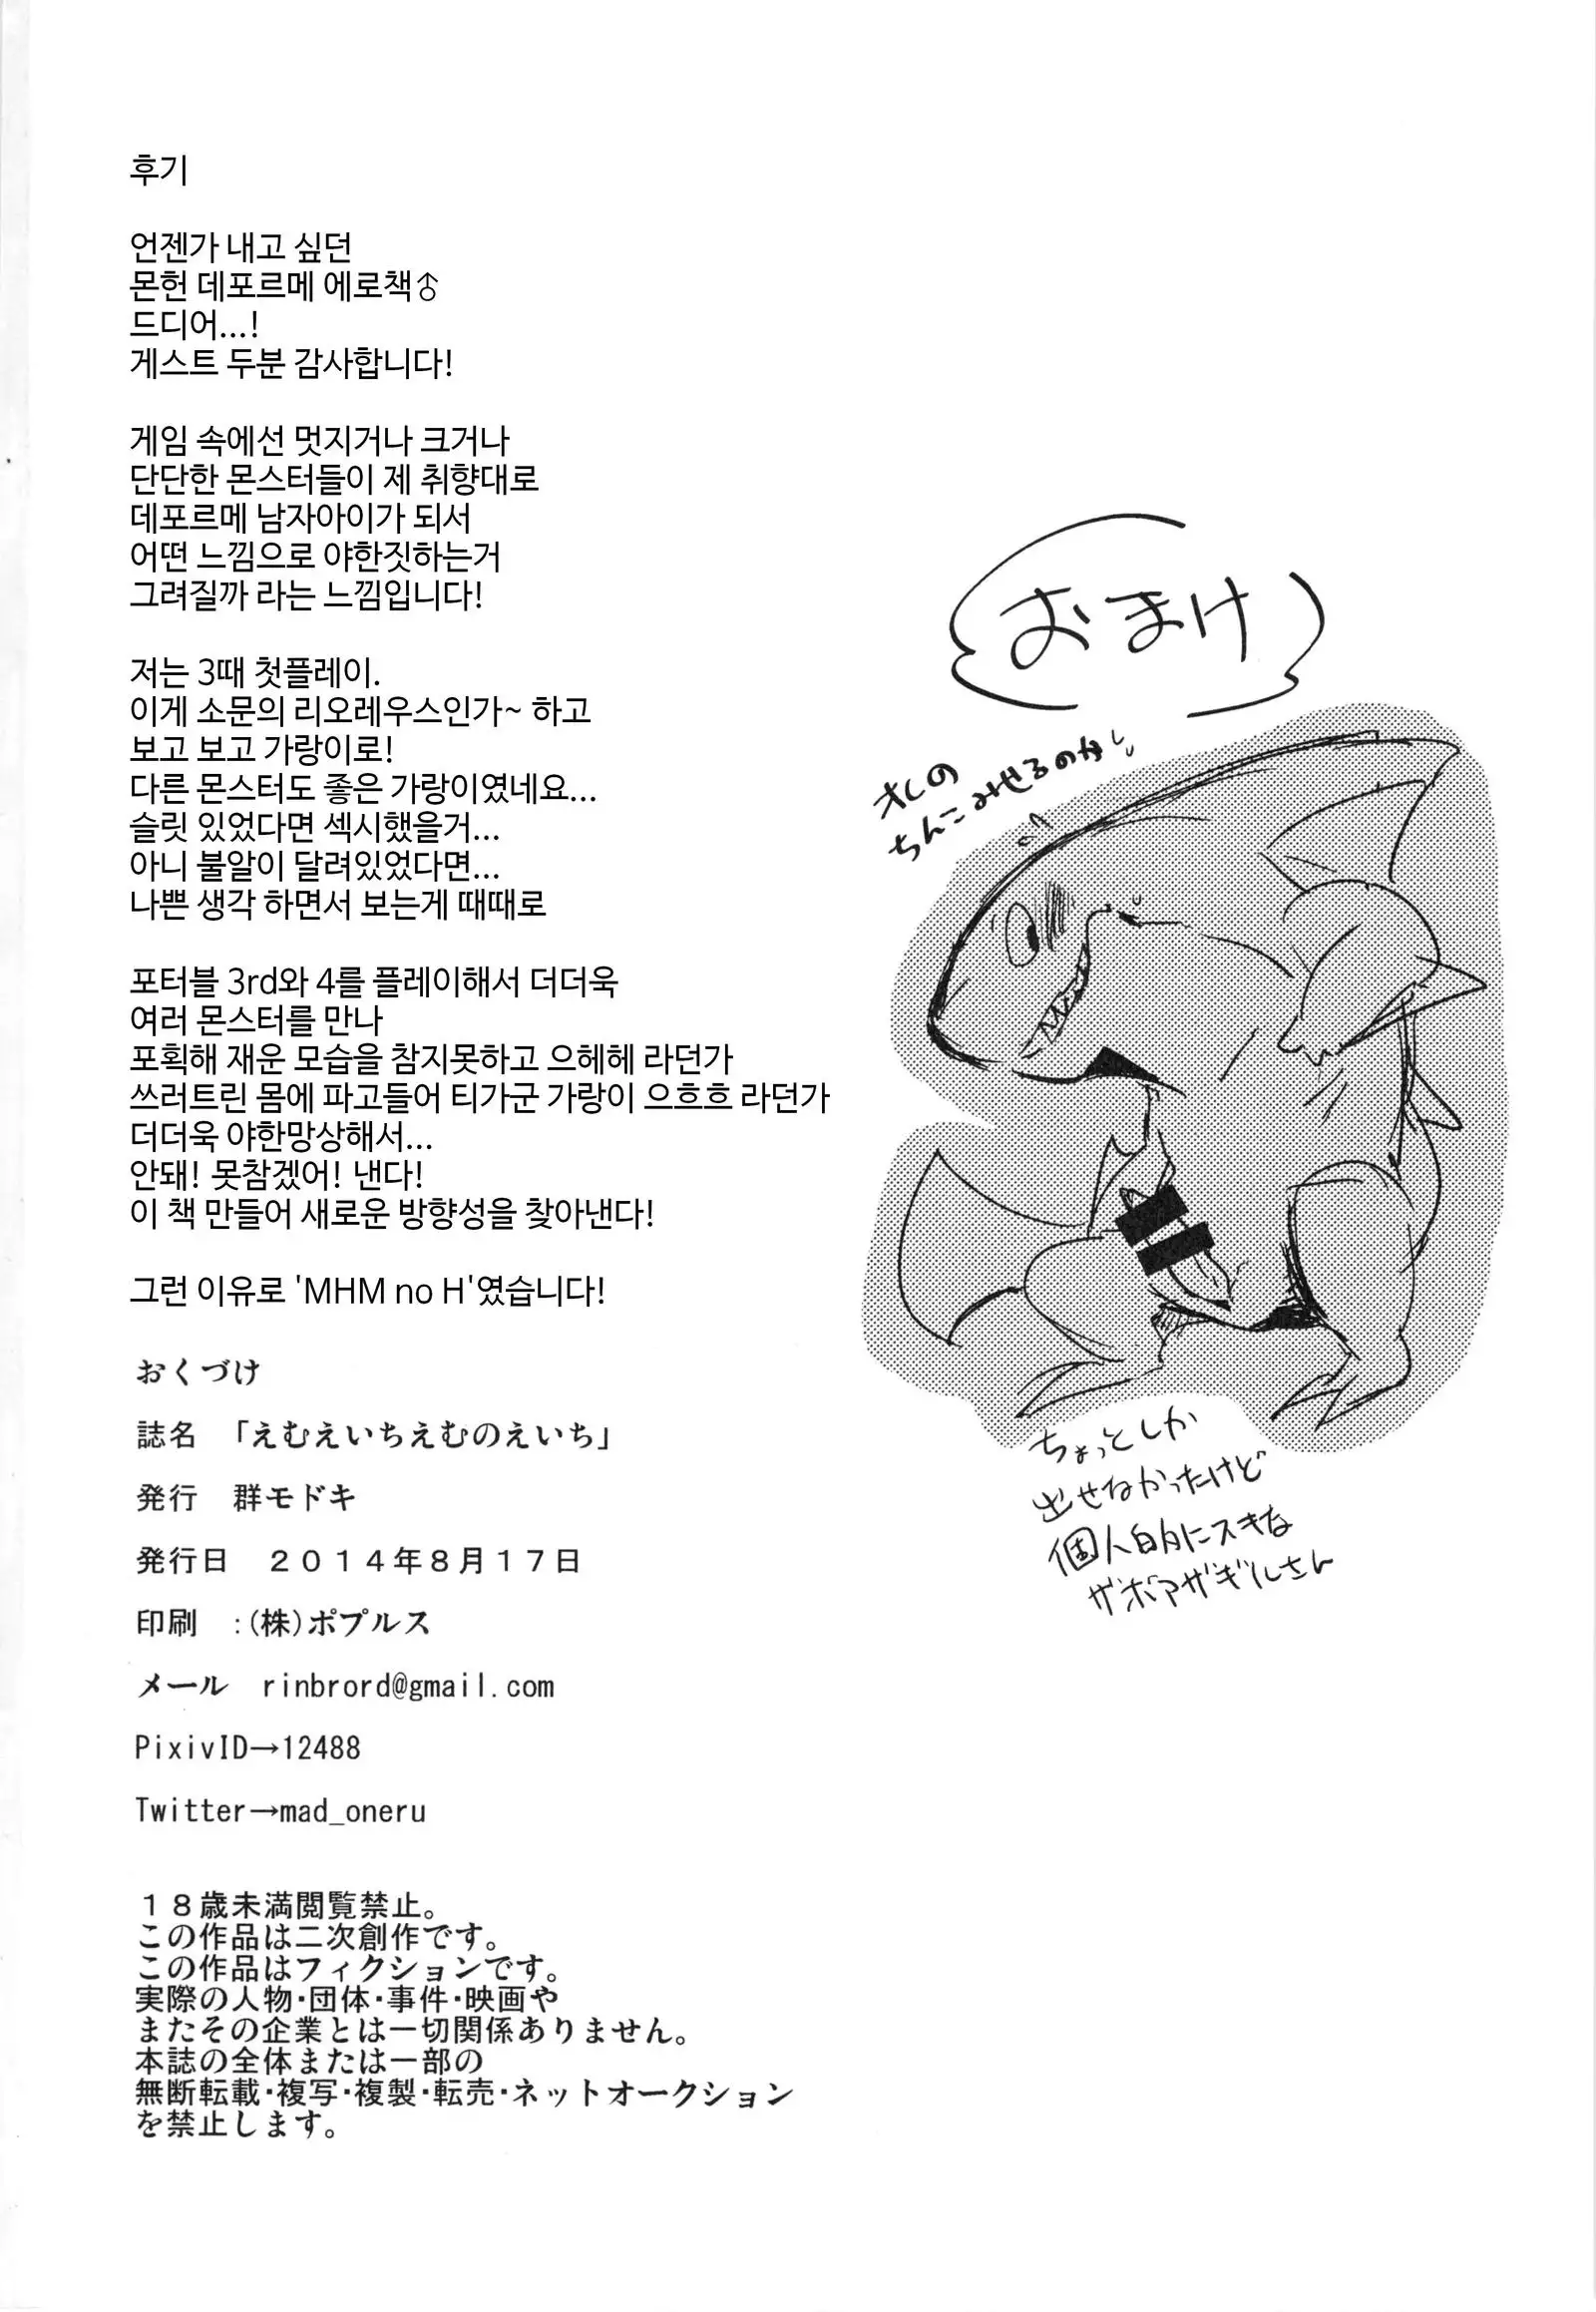 후기
언젠가 내고 싶던
몬헌 데포르메 에로책♂
드디어...!
게스트 두분 감사합니다!
게임 속에선 멋지거나 크거나
단단한 몬스터들이 제 취향대로
데포르메 남자아이가 되서
어떤 느낌으로 야한짓하는거
그려질까 라는 느낌입니다!
저는 3때 첫플레이.
이게 소문의 리오레우스인가~ 하고
보고 보고 가랑이로!
다른 몬스터도 좋은 가랑이였네요...
슬릿 있었다면 섹시했을거...
아니 불알이 달려있었다면...
나쁜 생각 하면서 보는게 때때로
포터블 3rd와 4를 플레이해서 더더욱
여러 몬스터를 만나
포획해 재운 모습을 참지못하고 으헤헤 라던가
쓰러트린 몸에 파고들어 티가군 가랑이 으흐흐 라던가
더더욱 야한망상해서...
안돼! 못참겠어! 낸다!
이 책 만들어 새로운 방향성을 찾아낸다!
그런 이유로 'MHM no H'였습니다!
おくづけ
誌名　「えむえいちえむのえいち」
発行　群モドキ
発行日　２０１４年８月１７日
印刷　:(株)ポプルス
メール　rinbrord@gmail.com
PixivID→12488
Twitter→mad_oneru
１８歳未満閲覧禁止。
この作品は二次創作です。
この作品はフィクションです。
実際の人物・団体・事件・映画や
またその企業とは一切関係ありません。
本誌の全体または一部の
無断転載・複写・複製・転売・ネットオークション
を禁止します。
おまけ
オレの
ちんこみせるのか
ちょっとしか
出せなかったけど
個人的にスキな
ザボアザギルさん